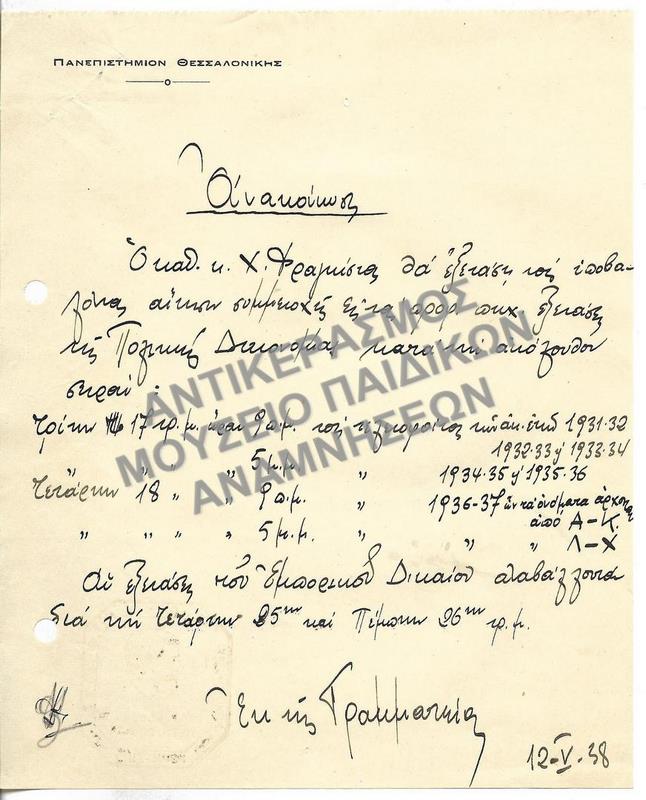 ΠΑΝΕΠΙΣΤΗΜΙΟΝ ΘΕΣΣΑΛΟΝΙΚΗΣ
Ἀνακοίνωσις
Ὁ καθ. κ. Χ. Φραγκίστας θά ἐξετάσῃ τούς ὑποβα-
λόντας αἴτησιν συμμετοχῆς εἰς τάς προφ. πτυχ. ἐξετάσεις
τῆς Πολιτικῆς Δικονομίας κατά τήν ἀκόλουθον
σειράν :
Τρίτην 17 τρ. μ. ὥραν 9 π.μ. τούς τελειοφοίτους τῶν ἀκ. ἐτῶν 1931-32
1932-33 ἤ 1933-34
" " " 5 μ.μ. " 1934-35 ἤ 1935-36
Τετάρτην 18 " " 9 π.μ. " 1936-37 ὧν τά ὀνόματα ἀρχονται
ἀπό Α-Κ.
" " " " 5 μ.μ. " " Λ-Χ
Αἱ ἐξετάσεις τοῦ Ἐμπορικοῦ Δικαίου ἀναβάλλονται
διά τήν Τετάρτην 25ην καί Πέμπτην 26ην τρ. μ.
Ἐκ τῆς Γραμματείας
12-V-38
ΑΝΤΙΚΕΡΑΣΜΟΣ
ΜΟΥΣΕΙΟ ΠΑΙΔΙΚΩΝ
ΑΝΑΜΝΗΣΕΩΝ